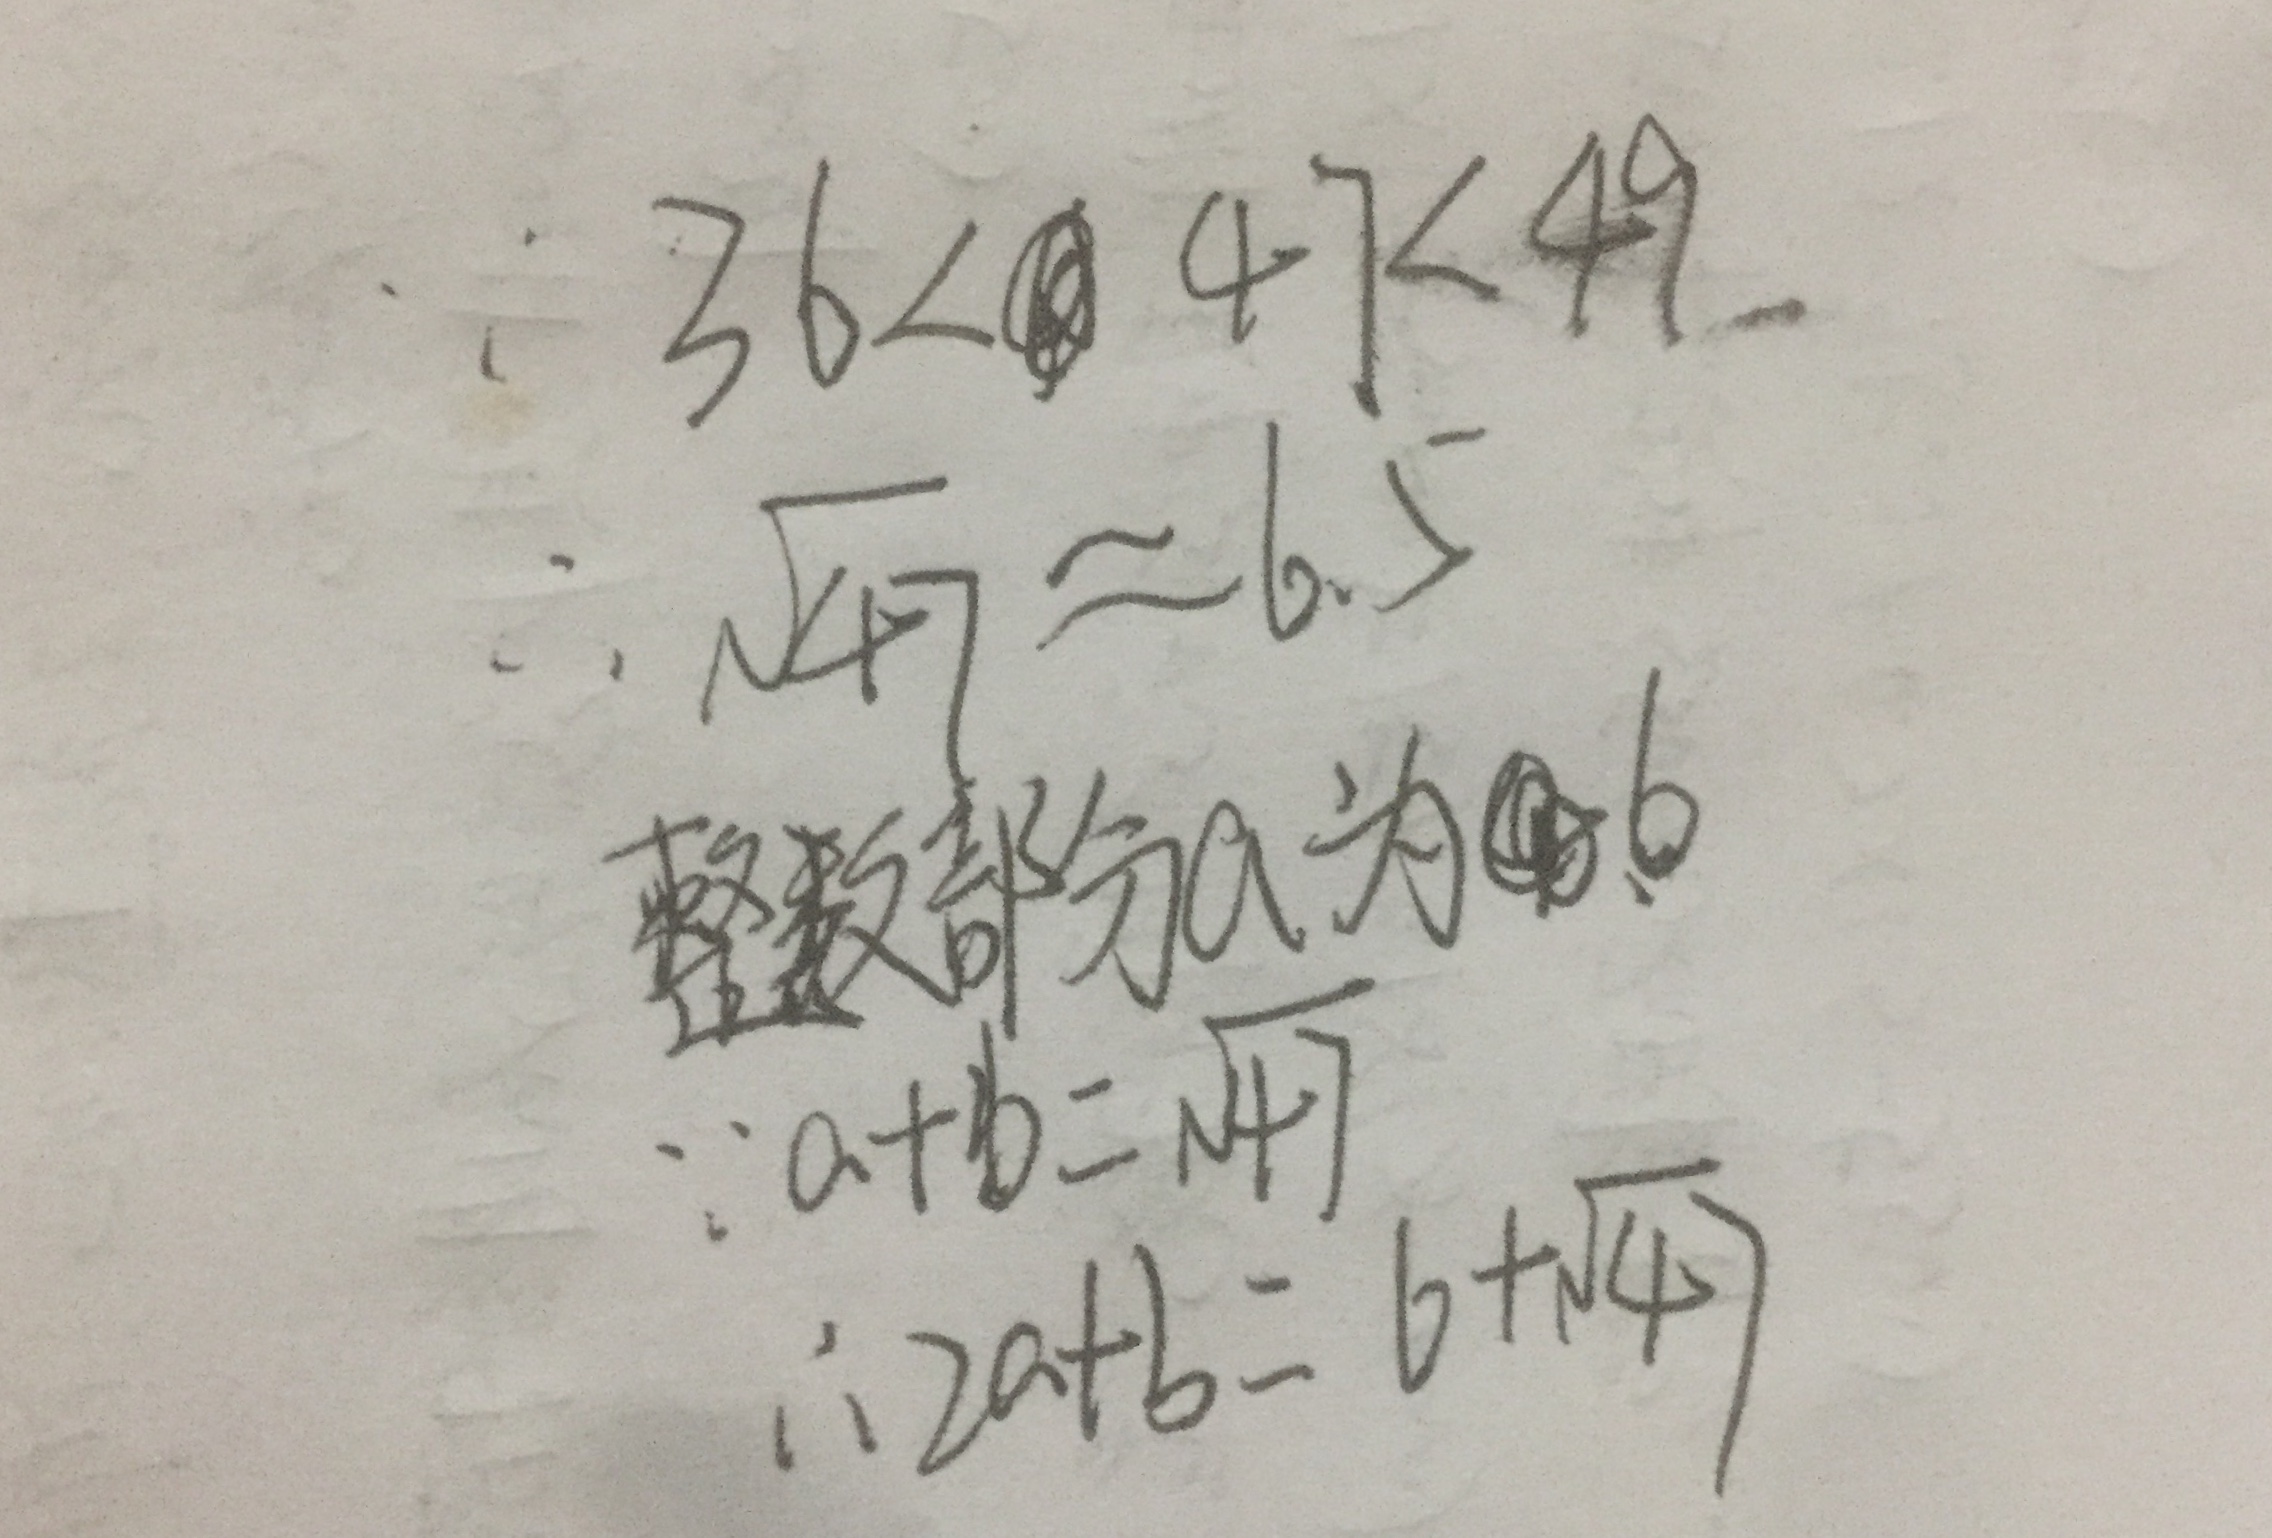 ∵ 36< 47<49
∴ √47≈6.5
整数部分a为6
∵a+b=√47
∴2a+b=6+√47